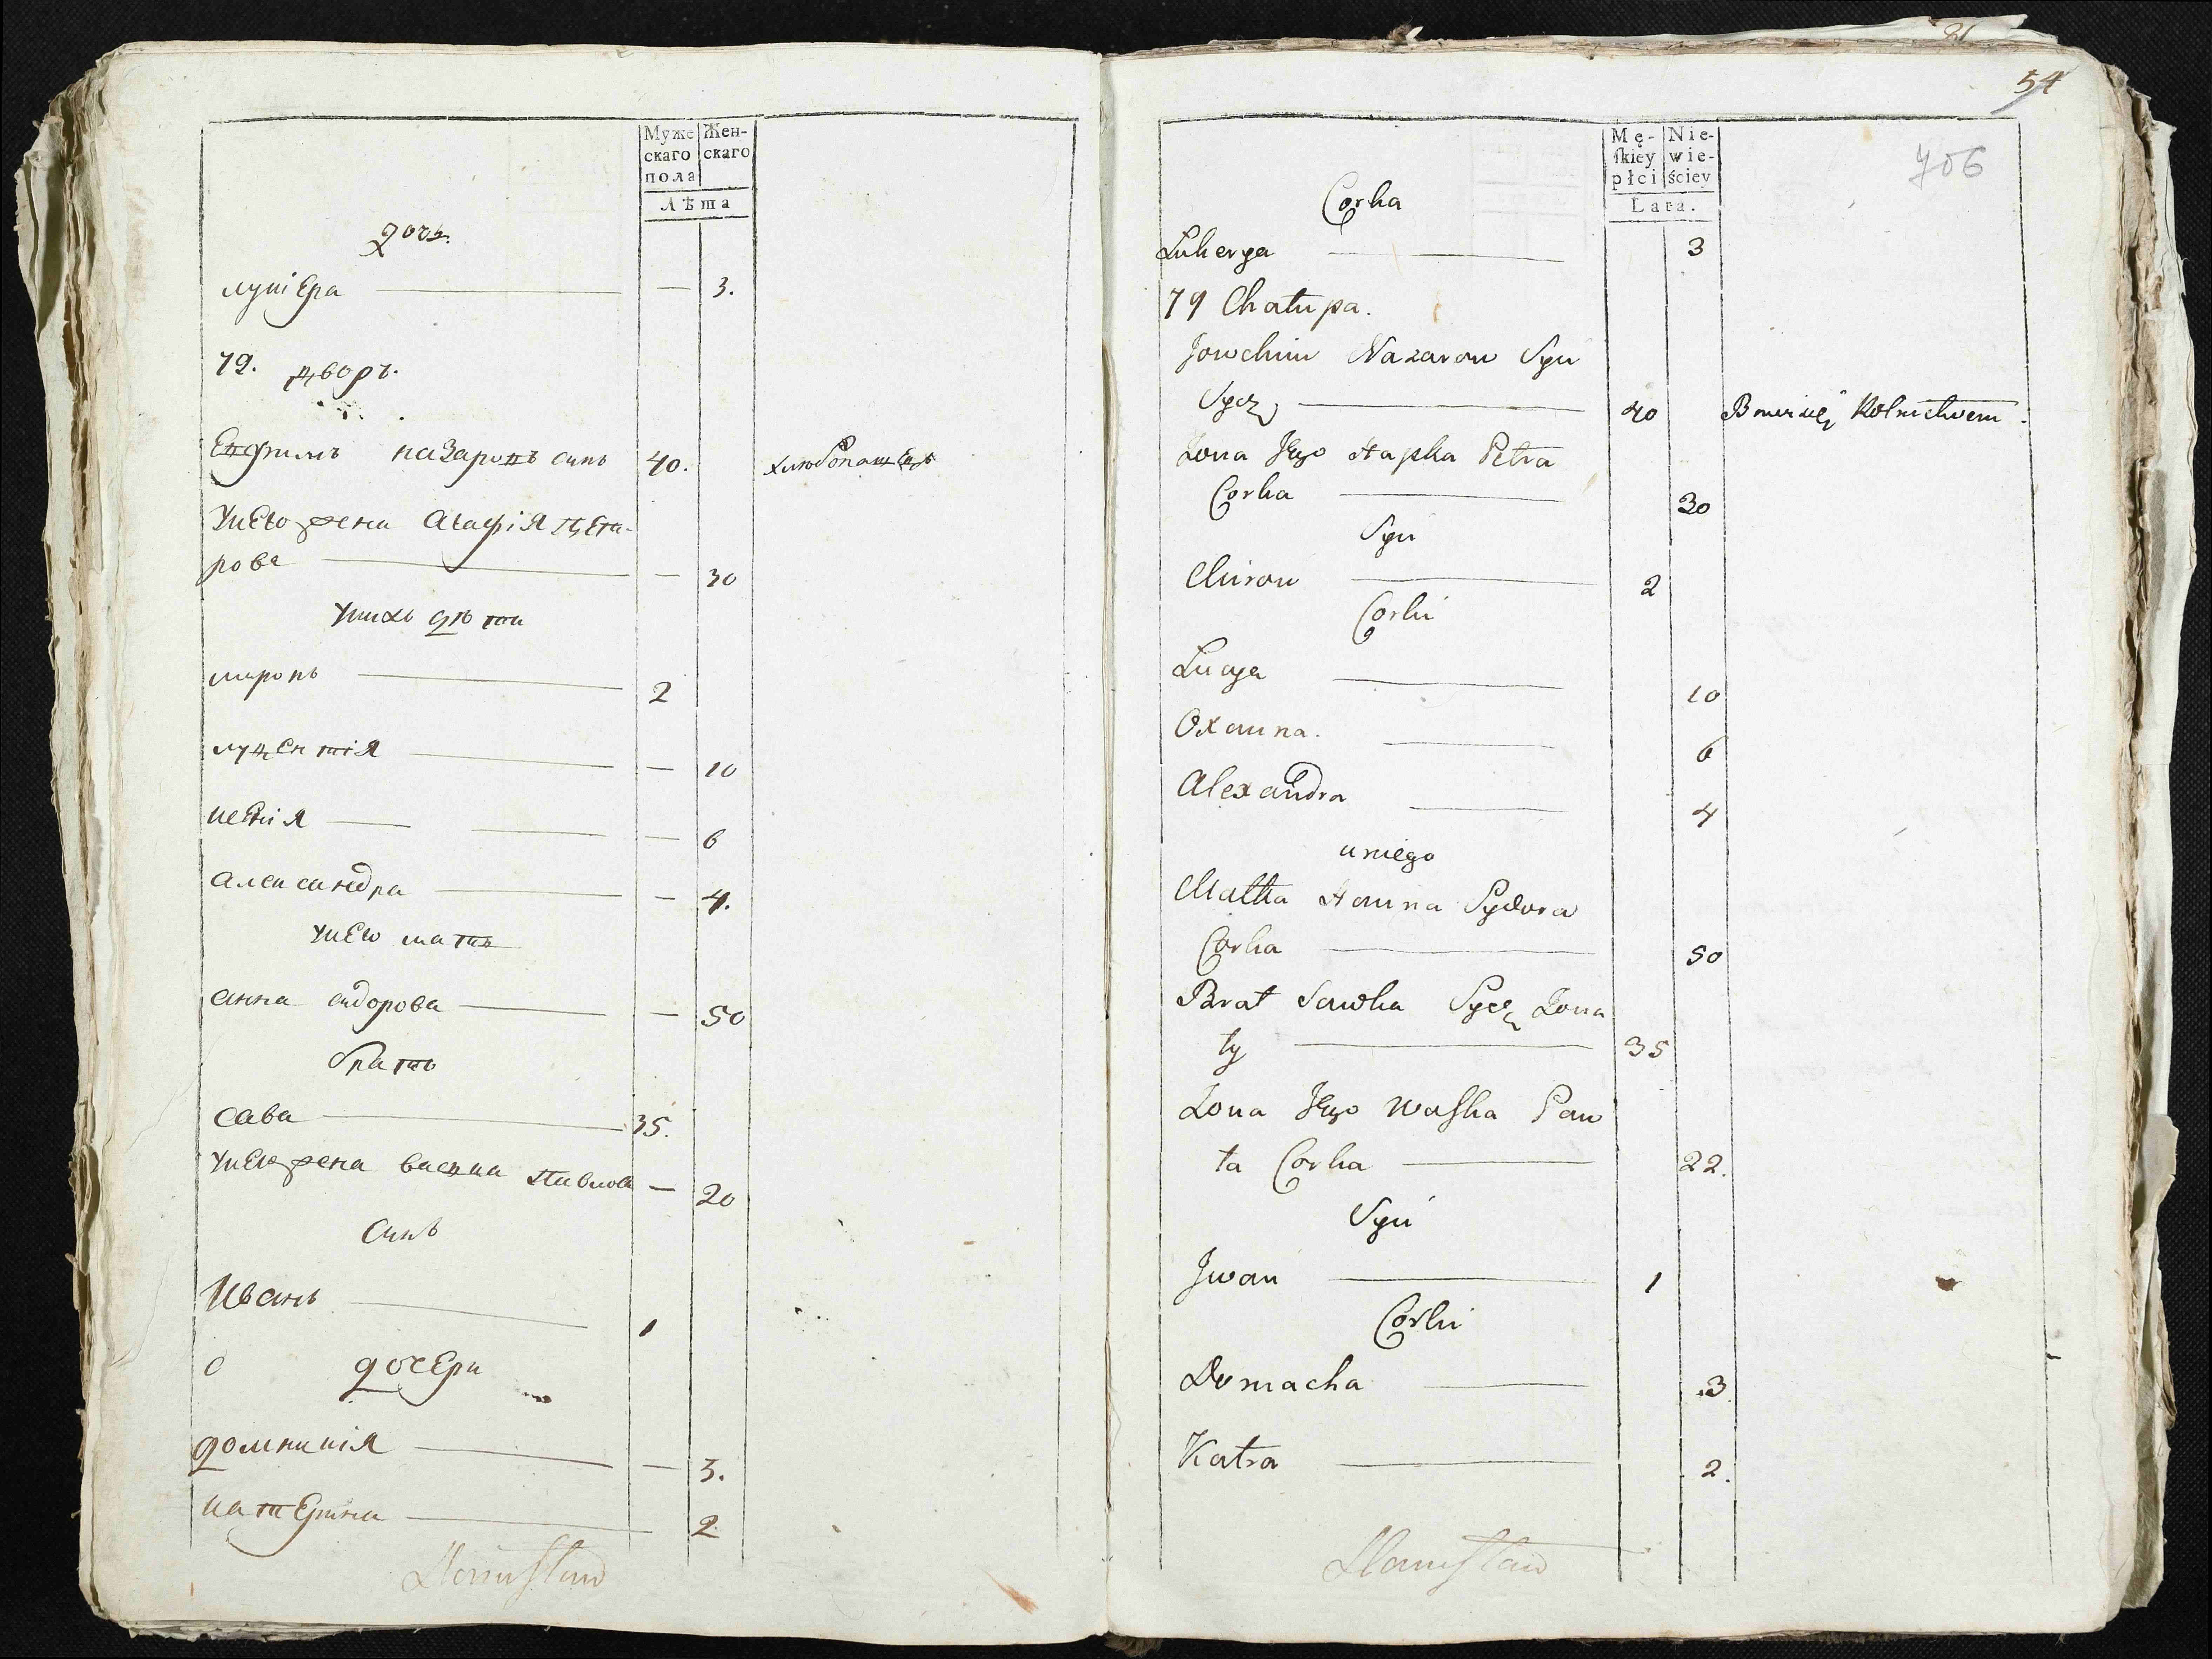 Муже
скаго
пола
Жен-
скаго
Лѣта
дочь.
лукіера — 3.
79. дворъ.
Евфимъ назаровъ синъ 40. хлюбопашецъ
Унево жена агафіЯ пет-
рова — 30
Унихъ дѣти
миронъ 2
лукентіЯ — 10
ксеніЯ — 6
александра — 4.
Унево мать
анна сидорова — 50
братъ
сава 35.
Унево жена васка павлова — 20
Синъ
Иванъ 1
дочери
домникіЯ — 3.
катерина 2.
Stanisław
21
54
706
Mę-
skiey
płci
Nie-
wie-
ściey
Lata.
Corka
Lukerya 3
79 Chałupa.
Jowchim Nazarow Syn
Sycz 40 Bawi się Rolnictwem.
Zona Jego Hapka Petra
Corka 30
Syn
Miron 2
Corki
Lucya 10
Oxanna. 6
Alexandra 4
u niego
Matka Hanna Sydora
Corka 50
Brat Sawka Sycz Zona
ty 35
Zona Jego Waska Paw
ła Corka 22.
Syn
Jwan 1
Corki
Domacha 3
Katra 2.
Stanisław